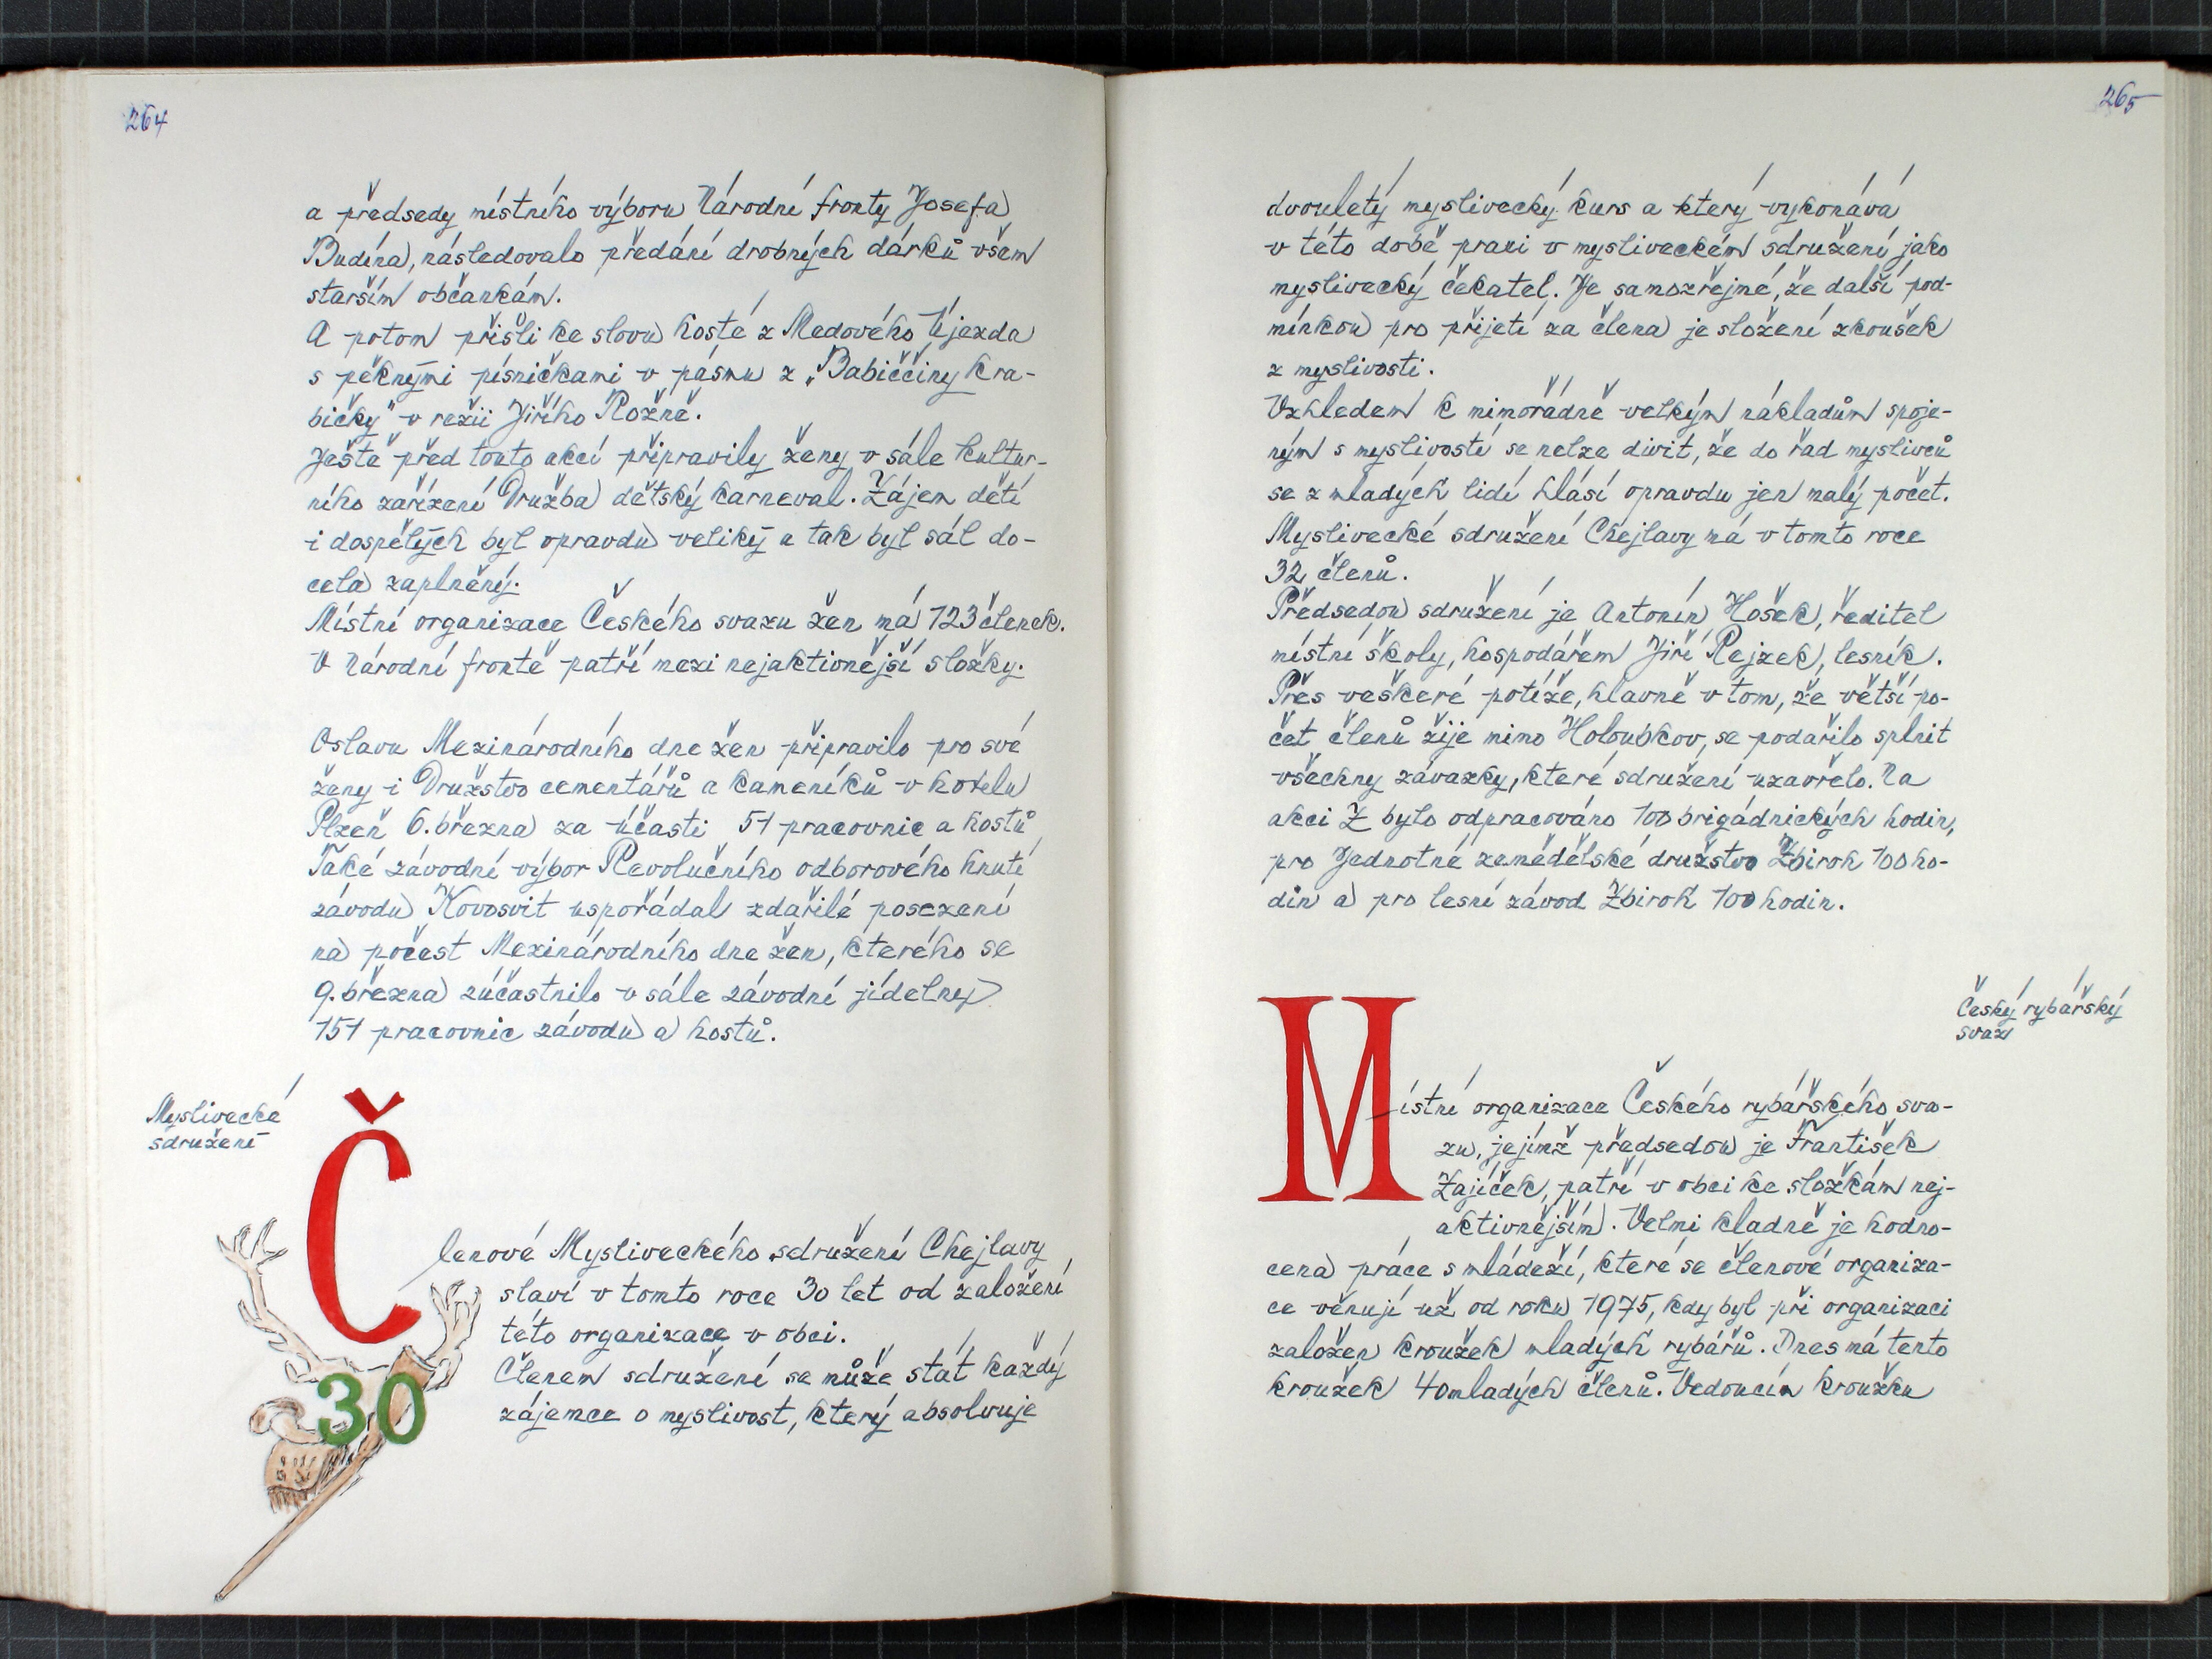 264
a předsedy místního výboru Národní fronty Josefa
Budína, následovalo předání drobných dárků všem
starším občankám.
A potom přišli ke slovu hosté z Medového Újezda
s pěknými písničkami v pásmu z „Babiččiny kra-
bičky" v režii Jiřího Rožně.
Ještě před touto akcí připravily ženy v sále kultur-
ního zařízení Družba dětský karneval. Zájem dětí
i dospělých byl opravdu veliký a tak byl sál do-
cela zaplněný.
Místní organizace Českého svazu žen má 123 členek.
V Národní frontě patří mezi nejaktivnější složky.
Oslavu Mezinárodního dne žen připravilo pro své
ženy i Družstvo cementářů a kameníků v hotelu
Plzeň 6. března za účasti 51 pracovnic a hostů
Také závodní výbor Revolučního odborového hnutí
závodu Kovosvit uspořádal zdařilé posezení
na počest Mezinárodního dne žen, kterého se
9. března zúčastnilo v sále závodní jídelny
151 pracovnic závodu a hostů.
Myslivecké
sdružení
Členové Mysliveckého sdružení Chejlavy
slaví v tomto roce 30 let od založení
této organizace v obci.
Členem sdružení se může stát každý
zájemce o myslivost, který absolvuje
30
265
dvouletý myslivecký kurs a který vykonává
v této době praxi v mysliveckém sdružení jako
myslivecký čekatel. Je samozřejmé, že další pod-
mínkou pro přijetí za člena je složení zkoušek
z myslivosti.
Vzhledem k mimořádně velkým nákladům spoje-
ným s myslivostí se nelze divit, že do řad myslivců
se z mladých lidí hlásí opravdu jen malý počet.
Myslivecké sdružení Chejlavy má v tomto roce
32 členů.
Předsedou sdružení je Antonín Hošek, ředitel
místní školy, hospodářem Jiří Rejzek, lesník.
Přes veškeré potíže, hlavně v tom, že větší po-
čet členů žije mimo Holoubkov, se podařilo splnit
všechny závazky, které sdružení uzavřelo. Na
akci Z bylo odpracováno 100 brigádnických hodin,
pro Jednotné zemědělské družstvo Zbiroh 100 ho-
din a pro lesní závod Zbiroh 100 hodin.
Český rybářský
svaz
Místní organizace Českého rybářského sva-
zu, jejímž předsedou je František
Zajíček, patří v obci ke složkám nej-
aktivnějším. Velmi kladně je hodno-
cena práce s mládeží, které se členové organiza-
ce věnují už od roku 1975, kdy byl při organizaci
založen kroužek mladých rybářů. Dnes má tento
kroužek 40 mladých členů. Vedoucím kroužku